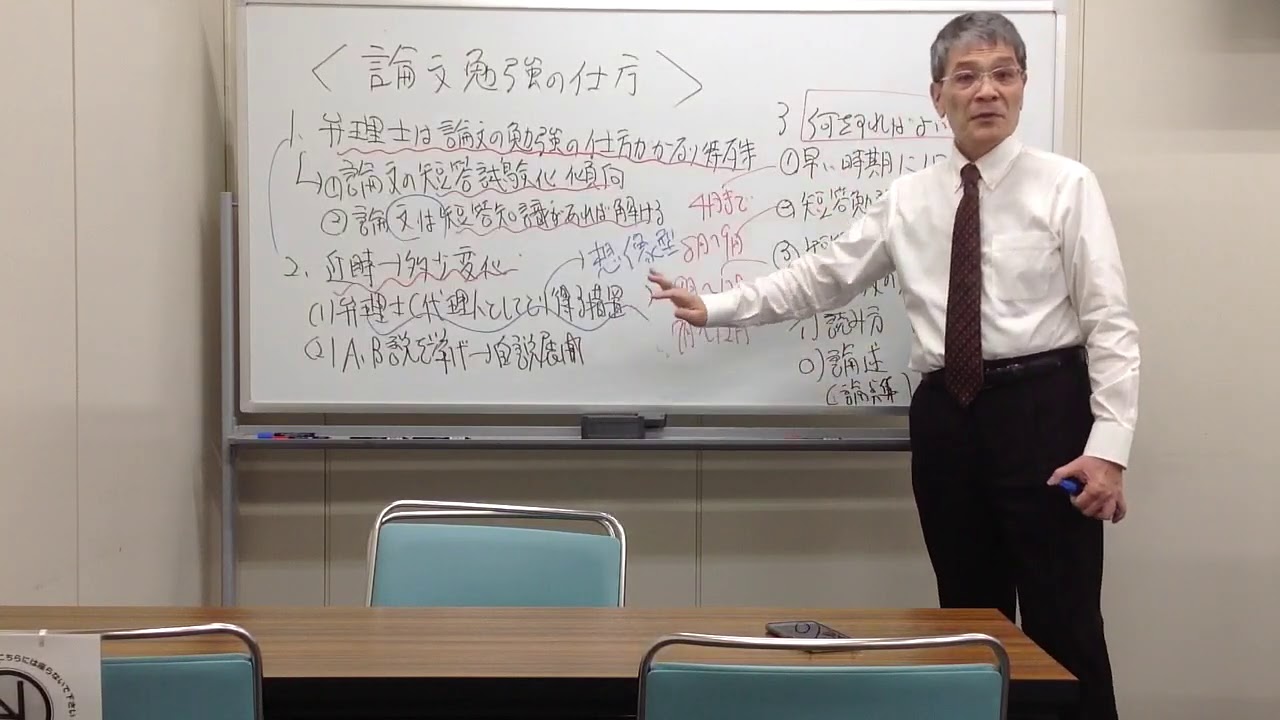 〈論文勉強の仕方〉
1. 弁理士は論文の勉強の仕方がかなり特殊
①論文の短答試験化傾向
②論文は短答知識があれば解ける
2. 近時→多少変化
(1)弁理士(代理人)としてとり得る措置
→想像型
(2)A、B説を挙げ→自説展開
3 何をすればよい
①早い時期に
4月まで
②短答勉
8月〜9月
③
イ)読み方
ロ)論述
(論点集)
こちらには座らないで下さい